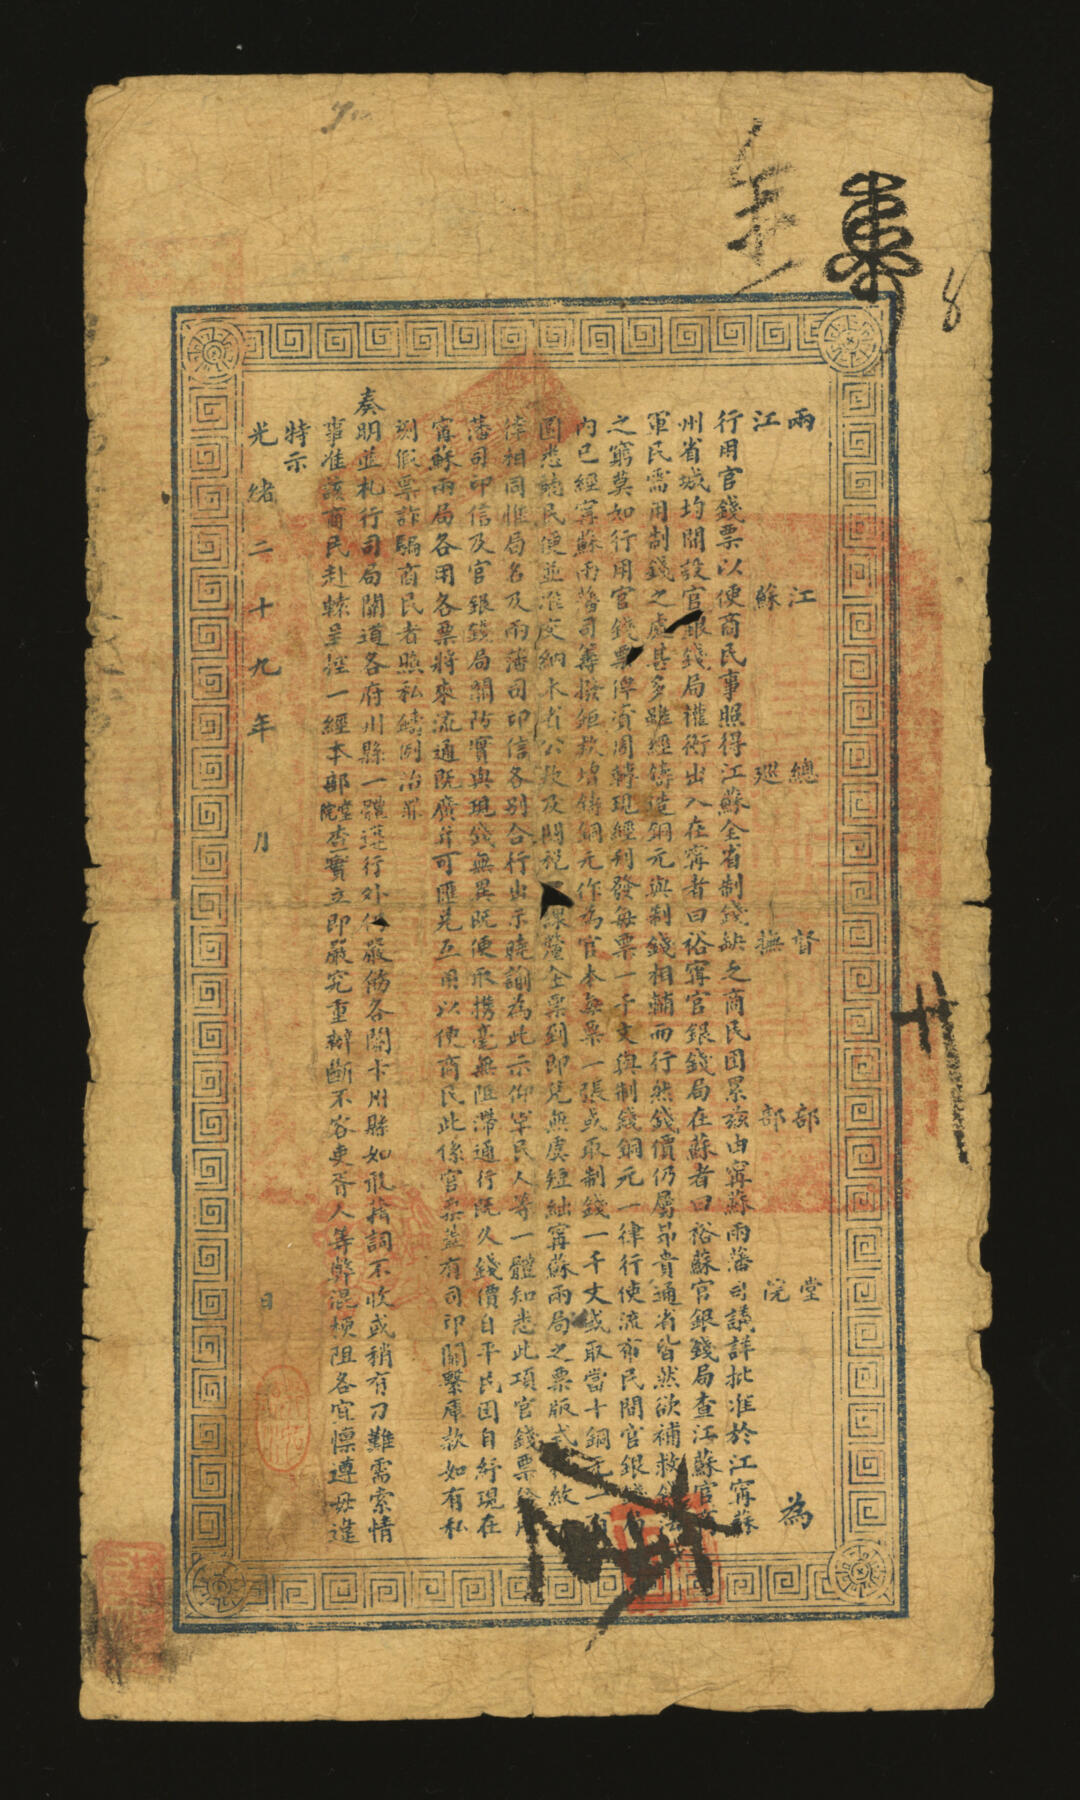 兩江總督部堂
江蘇巡撫部院 為
行用官錢票以便商民事照得江蘇全省制錢缺乏商民困累茲由甯蘇兩藩司議詳批准於江甯蘇
州省城均開設官銀錢局權衡出入在甯者曰裕甯官銀錢局在蘇者曰裕蘇官銀錢局查江蘇官
軍民需用制錢之處甚多雖經鑄造銅元與制錢相輔而行然錢價仍屬昂貴通省皆然欲補救
之窮莫如行用官錢票俾資周轉現經刊發每票一千文與制錢銅元一律行使流布民間官銀錢
內已經甯蘇兩藩司籌撥鉅款增鑄銅元作為官本每票一張或取制錢一千文或取當十銅元一百
圓悉聽民便並准交納本省公款及關稅 課釐金票到即兌無虞短絀甯蘇兩局之票版式 紋
律相同惟局名及兩藩司印信各別合行出示曉諭為此示仰軍民人等一體知悉此項官錢票
藩司印信及官銀錢局關防實與現錢無異既便取攜毫無阻滯通行既久錢價自平民困自紓現在
甯蘇兩局各用各票將來流通既廣并可匯兌互用以便商民此係官票蓋有司印關繫庫款如有私
刻假票詐騙商民者照私鑄例治罪
奏明並札行司局關道各府州縣一體遵行外 嚴飭各關卡州縣如敢藉詞不收或稍有刁難需索情
事准該商民赴轅呈控一經本部堂院查實立即嚴究重辦斷不容吏胥人等弊混梗阻各宜懍遵毋違
特示
光緒二十九年 月 日
8